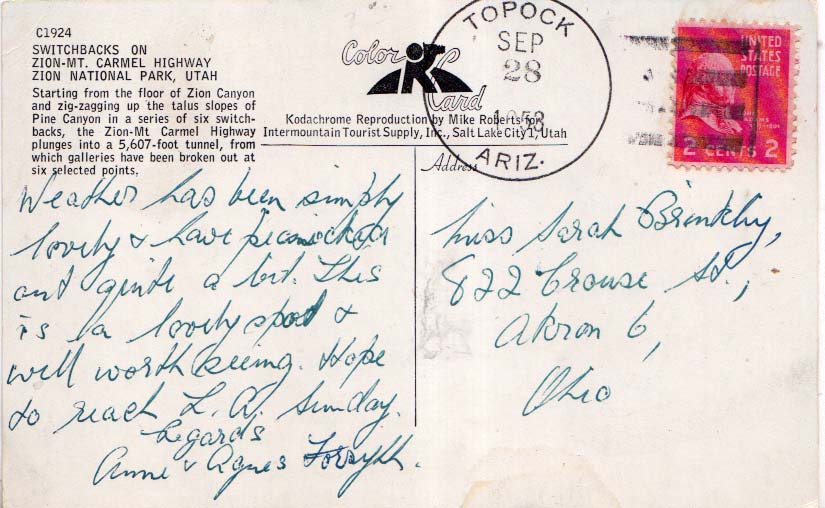 C1924
SWITCHBACKS ON
ZION-MT. CARMEL HIGHWAY
ZION NATIONAL PARK, UTAH
Starting from the floor of Zion Canyon
and zig-zagging up the talus slopes of
Pine Canyon in a series of six switch-
backs, the Zion-Mt Carmel Highway
plunges into a 5,607-foot tunnel, from
which galleries have been broken out at
six selected points.
Color Card
Kodachrome Reproduction by Mike Roberts for
Intermountain Tourist Supply, Inc., Salt Lake City 1, Utah
TOPOCK
SEP
28
1953
ARIZ.
UNITED
STATES
POSTAGE
ADAMS
2 CENTS 2
Address
Weather has been simply
lovely & have picnicked
out quite a bit. This
is a lovely spot &
well worth seeing. Hope
to reach L.A. Sunday.
Regards
Anne & Agnes Forsyth.
Miss Sarah Brinkly,
822 Crouse St.,
Akron 6,
Ohio